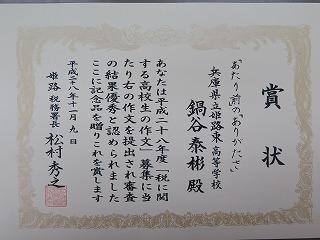 賞状
「あたり前の「ありがたさ」
兵庫県立姫路東高等学校
鍋谷泰彬殿
あなたは平成二十八年度「税に関
する高校生の作文」募集に当
たり右の作文を提出され審査
の結果優秀と認められました
ここに記念品を贈りこれを賞します
平成二十八年十一月九日
姫路税務署長 松村秀之